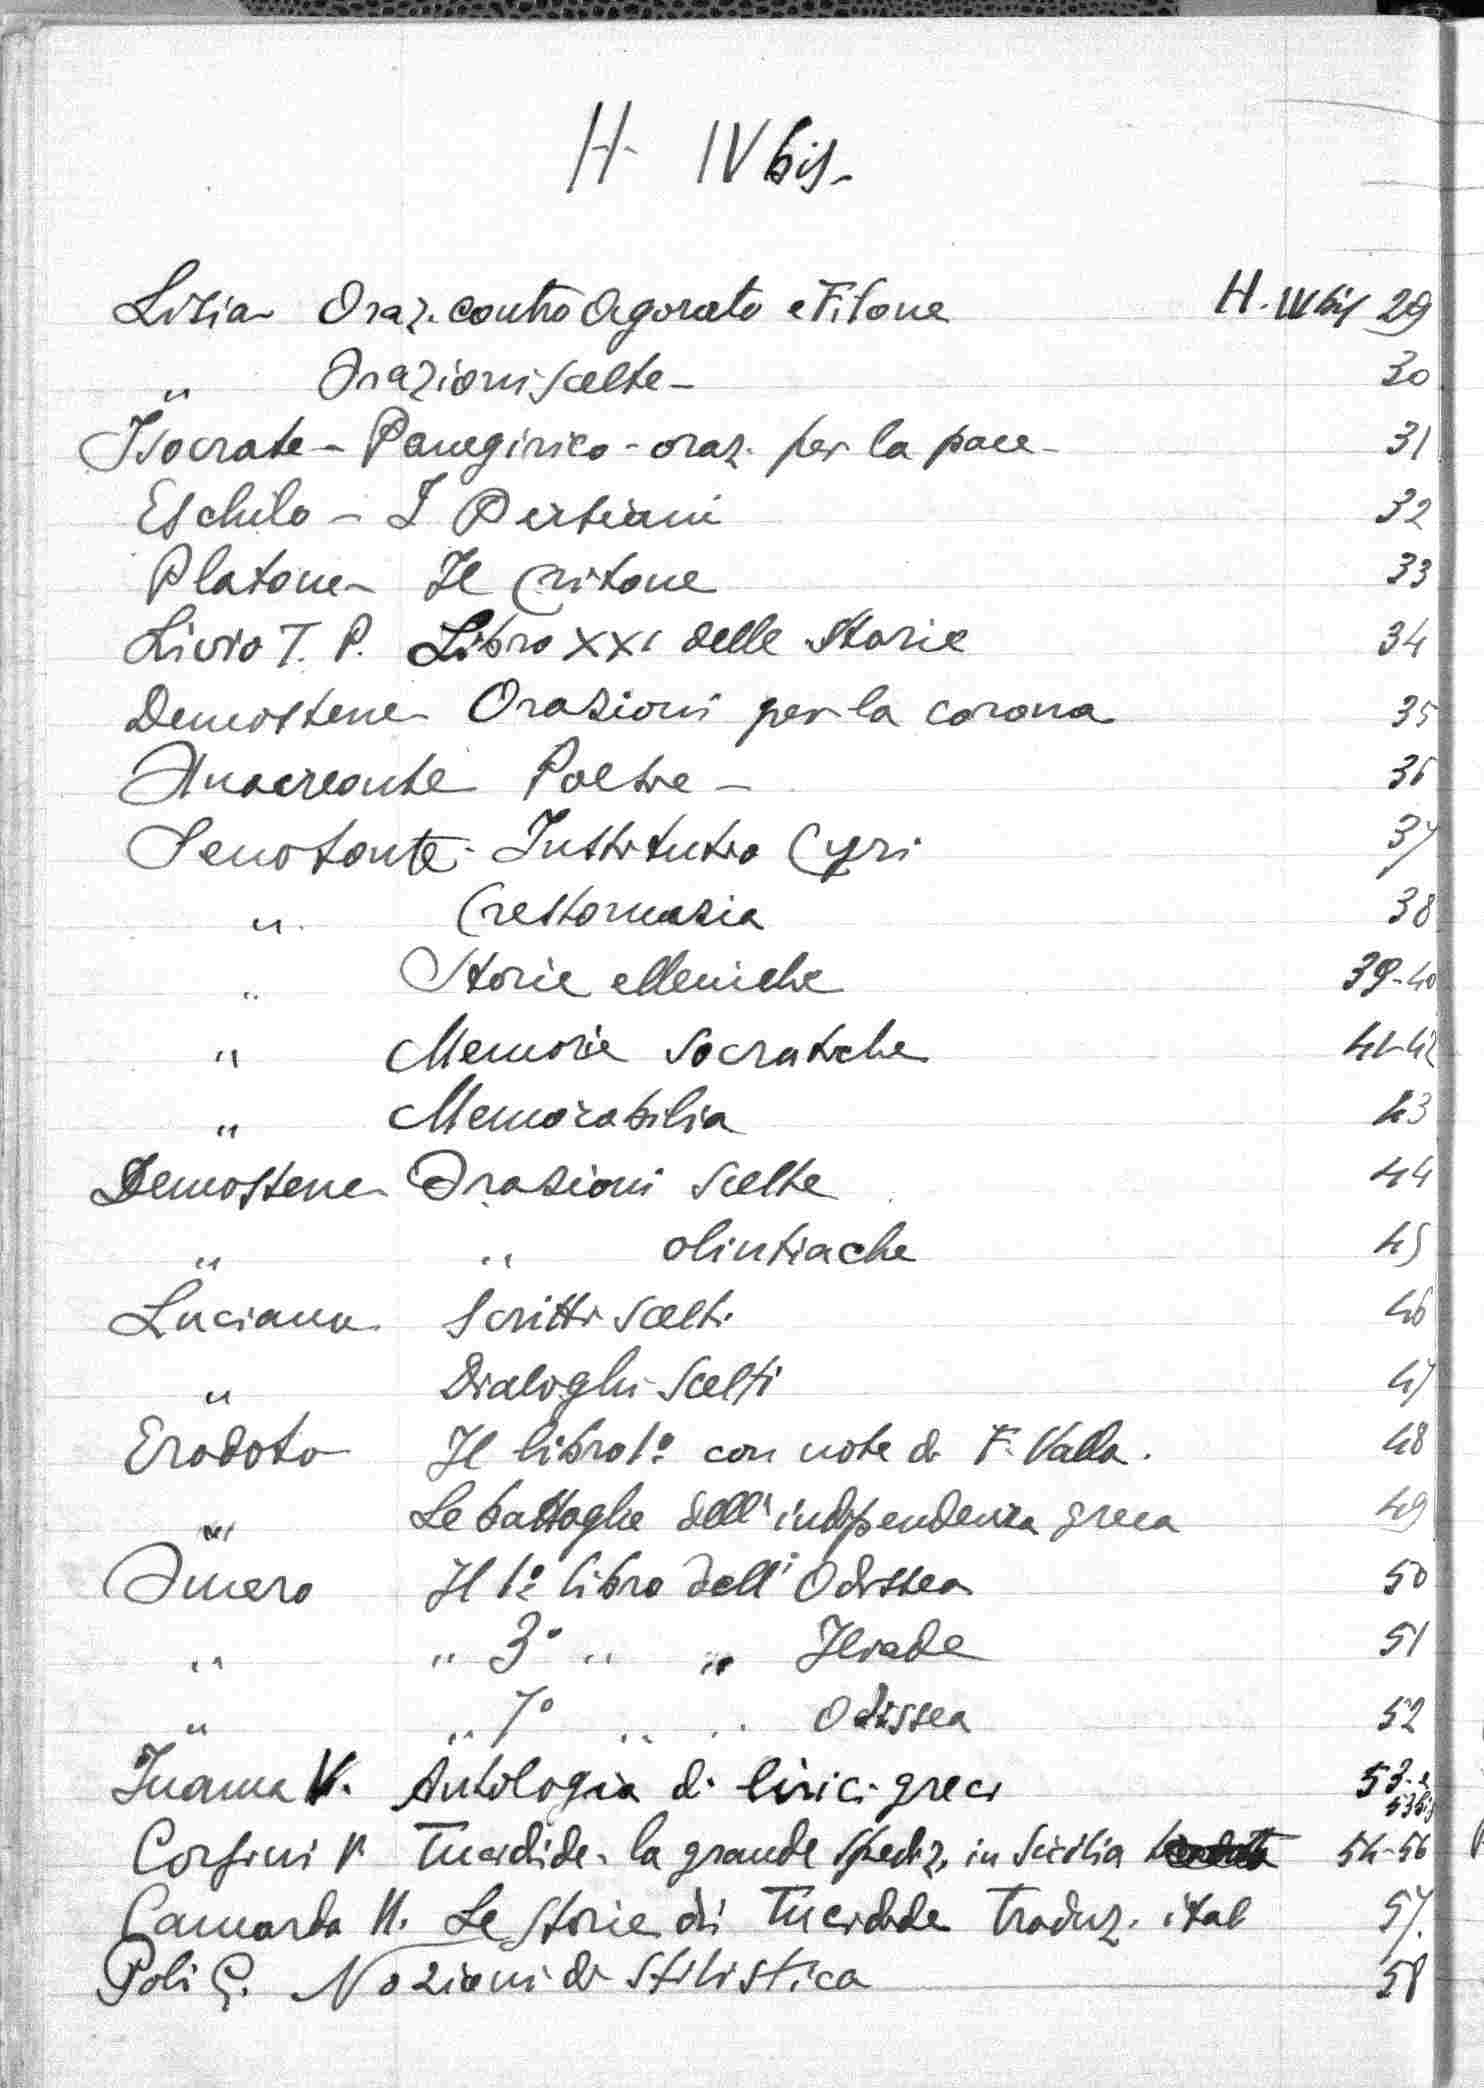 H IV bis-
Lisia Oraz. contro Agorato e Filone H. IV bis 29
" Orazioni scelte - 30
Isocrate - Panegirico - oraz. per la pace - 31
Eschilo - I Persiani 32
Platone - Il Critone 33
Livio T. P. Libro XXI delle Storie 34
Demostene - Orazioni per la corona 35
Anacreonte Poesie - 36
Senofonte - Institutio Cyri 37
" Crestomazia 38
" Storie elleniche 39-40
" Memorie Socratiche 41-42
" Memorabilia 43
Demostene Orazioni scelte 44
" " olintiache 45
Luciano Scritti scelti 46
" Dialoghi scelti 47
Erodoto Il libro 1º con note di F. Valla. 48
" Le battaglie dell'indipendenza greca 49
Omero Il 1º libro dell'Odissea 50
" " 3º " " Iliade 51
" " 7º " " Odissea 52
Inama V. Antologia di lirici greci 53 e 53bis
Corsini P. Tucidide - la grande spediz. in Sicilia 54-56
Camarda N. Le Storie di Tucidide Traduz. ital 57.
Poli G. Nozioni di stilistica 58